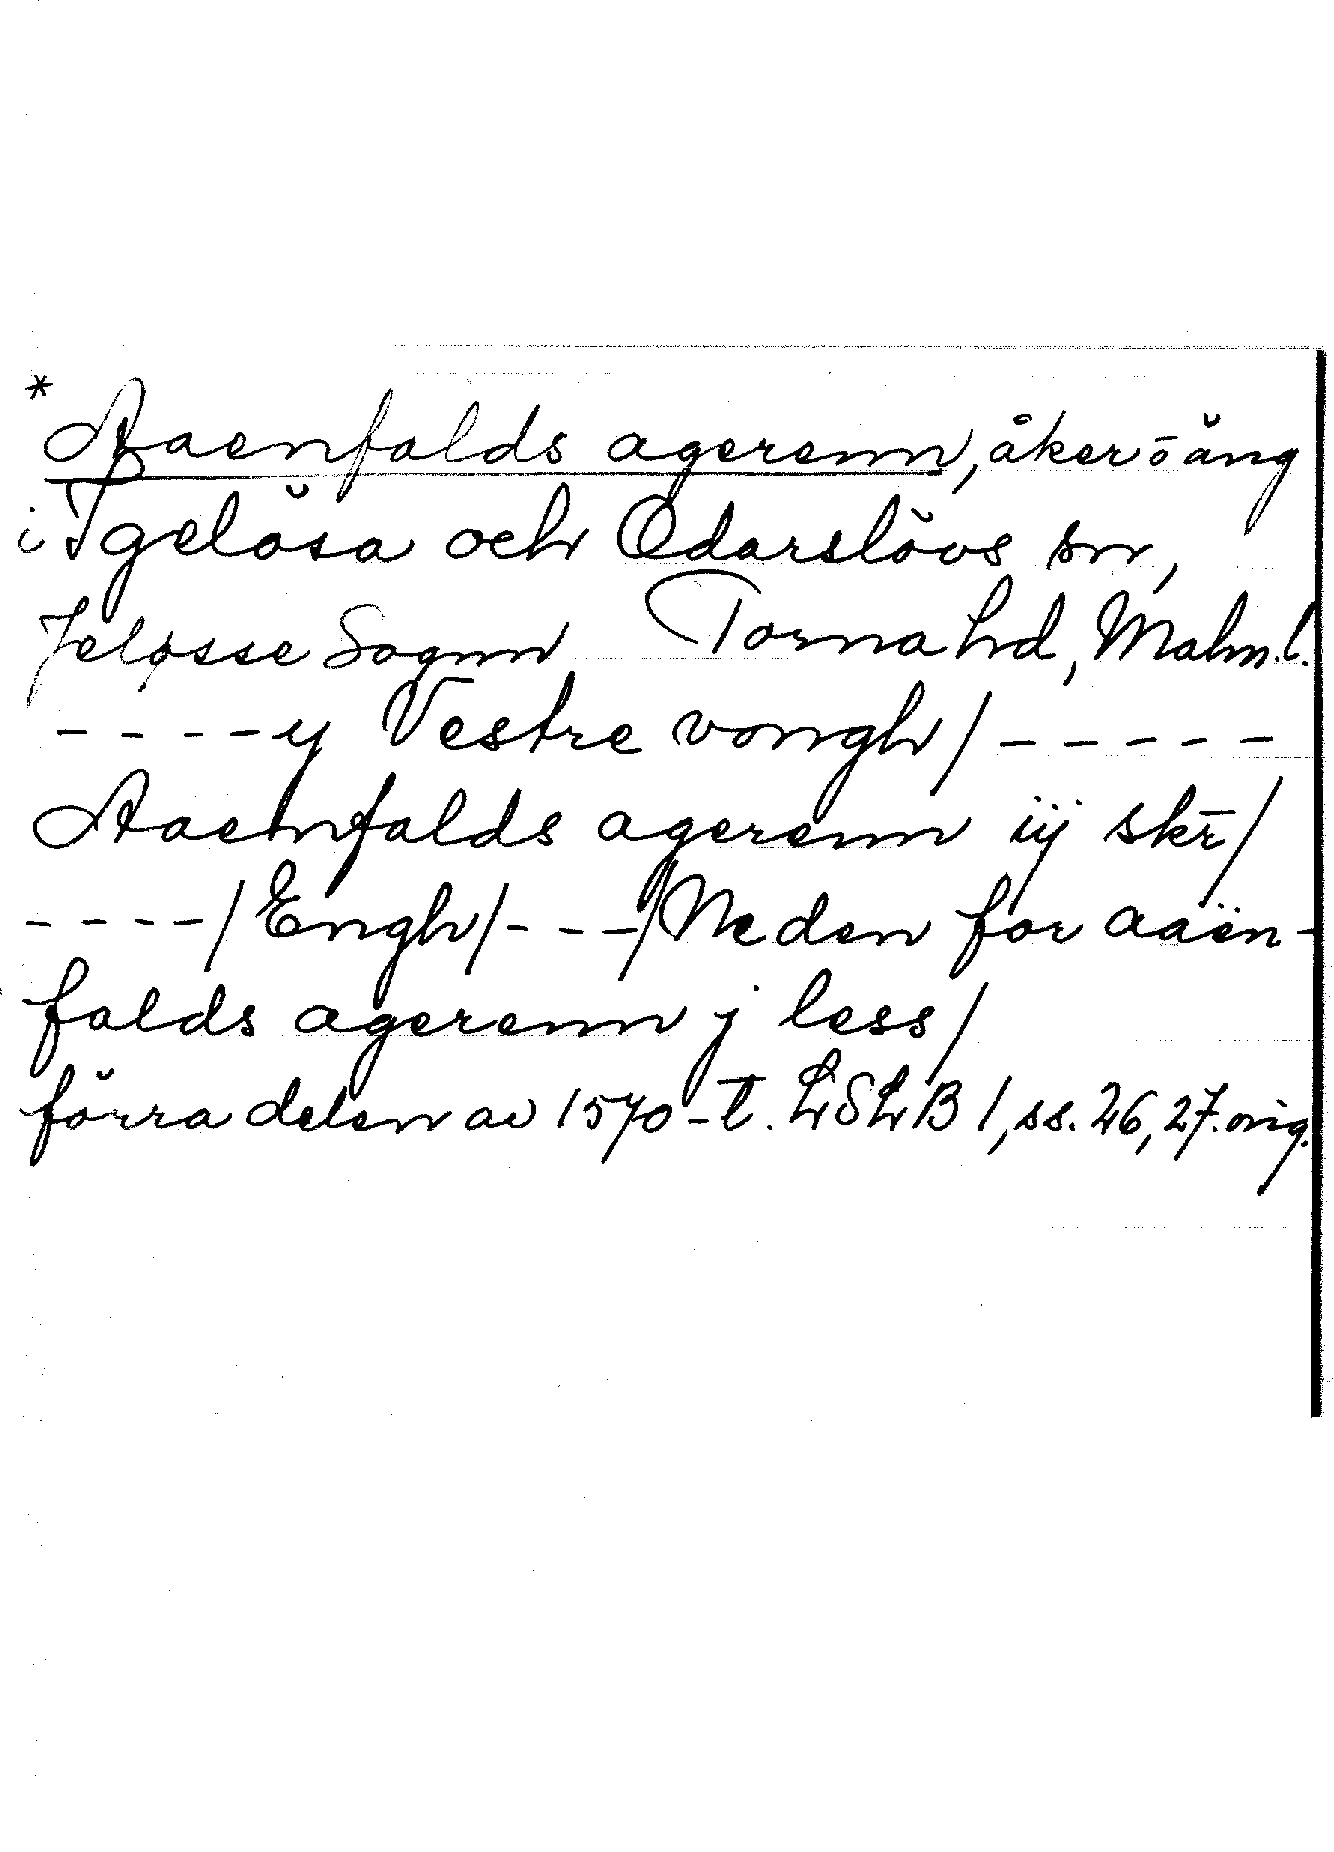 * Aaenfalds agerenn, åker o äng
i Igelösa och Odarslövs snr,
Jeløsse Sognn Torna hd, Malm.l.
----y Vestre vongh/-----
Aaenfalds agerenn iij skr̄/
----/Engh/---/Neden for aaën-
falds agerenn j less/
förra delen av 1570-t. LSLB 1, ss. 26, 27. orig.